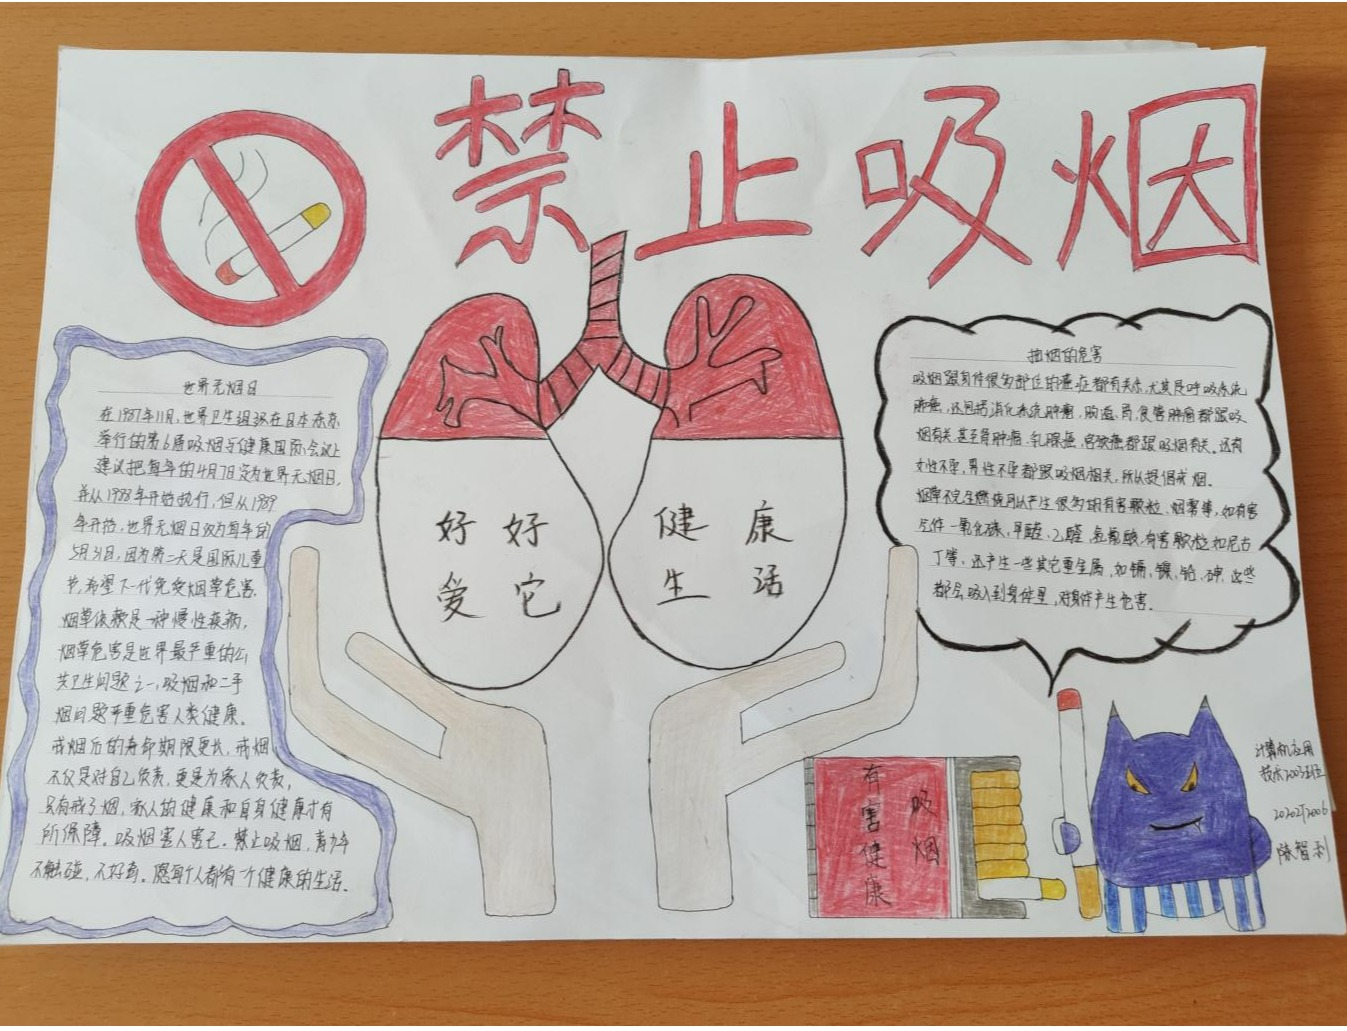 禁止吸烟
世界无烟日
在1987年11月,世界卫生组织在日本东京
举行的第6届吸烟与健康国际会议上
建议把每年的4月7日定为世界无烟日,
并从1988年开始执行,但从1989
年开始,世界无烟日改为每年的
5月31日,因为第二天是国际儿童
节,希望下一代免受烟草危害.
烟草依赖是一种慢性疾病,
烟草危害是世界最严重的公
共卫生问题之一,吸烟和二手
烟问题严重危害人类健康.
戒烟后的寿命期限更长,戒烟
不仅是对自己负责,更是为家人负责,
只有戒了烟,家人的健康和自身健康才有
所保障。吸烟害人害己。禁止吸烟,青少年
不触碰,不好奇。愿每个人都有一个健康的生活.
好好
爱它
健康
生活
抽烟的危害
吸烟跟身体很多部位的癌症都有关系,尤其是呼吸系统
肿瘤,还包括消化系统肿瘤,胸道,胃,食管肿瘤都跟吸
烟有关,甚至骨肿瘤,乳腺癌,宫颈癌都跟吸烟有关.还有
女性不孕,男性不孕都跟吸烟相关,所以提倡戒烟.
烟草不完全燃烧可以产生很多的有害颗粒,烟雾等,如有害
气体一氧化碳,甲醛,乙醛,氢氰酸,有害颗粒如尼古
丁等,还产生一些其它重金属,如镉,镍,铅,砷,这些
都会吸入到身体里,对身体产生危害.
吸烟
有害健康
计算机应用
技术2003班
2020212006
陈智利